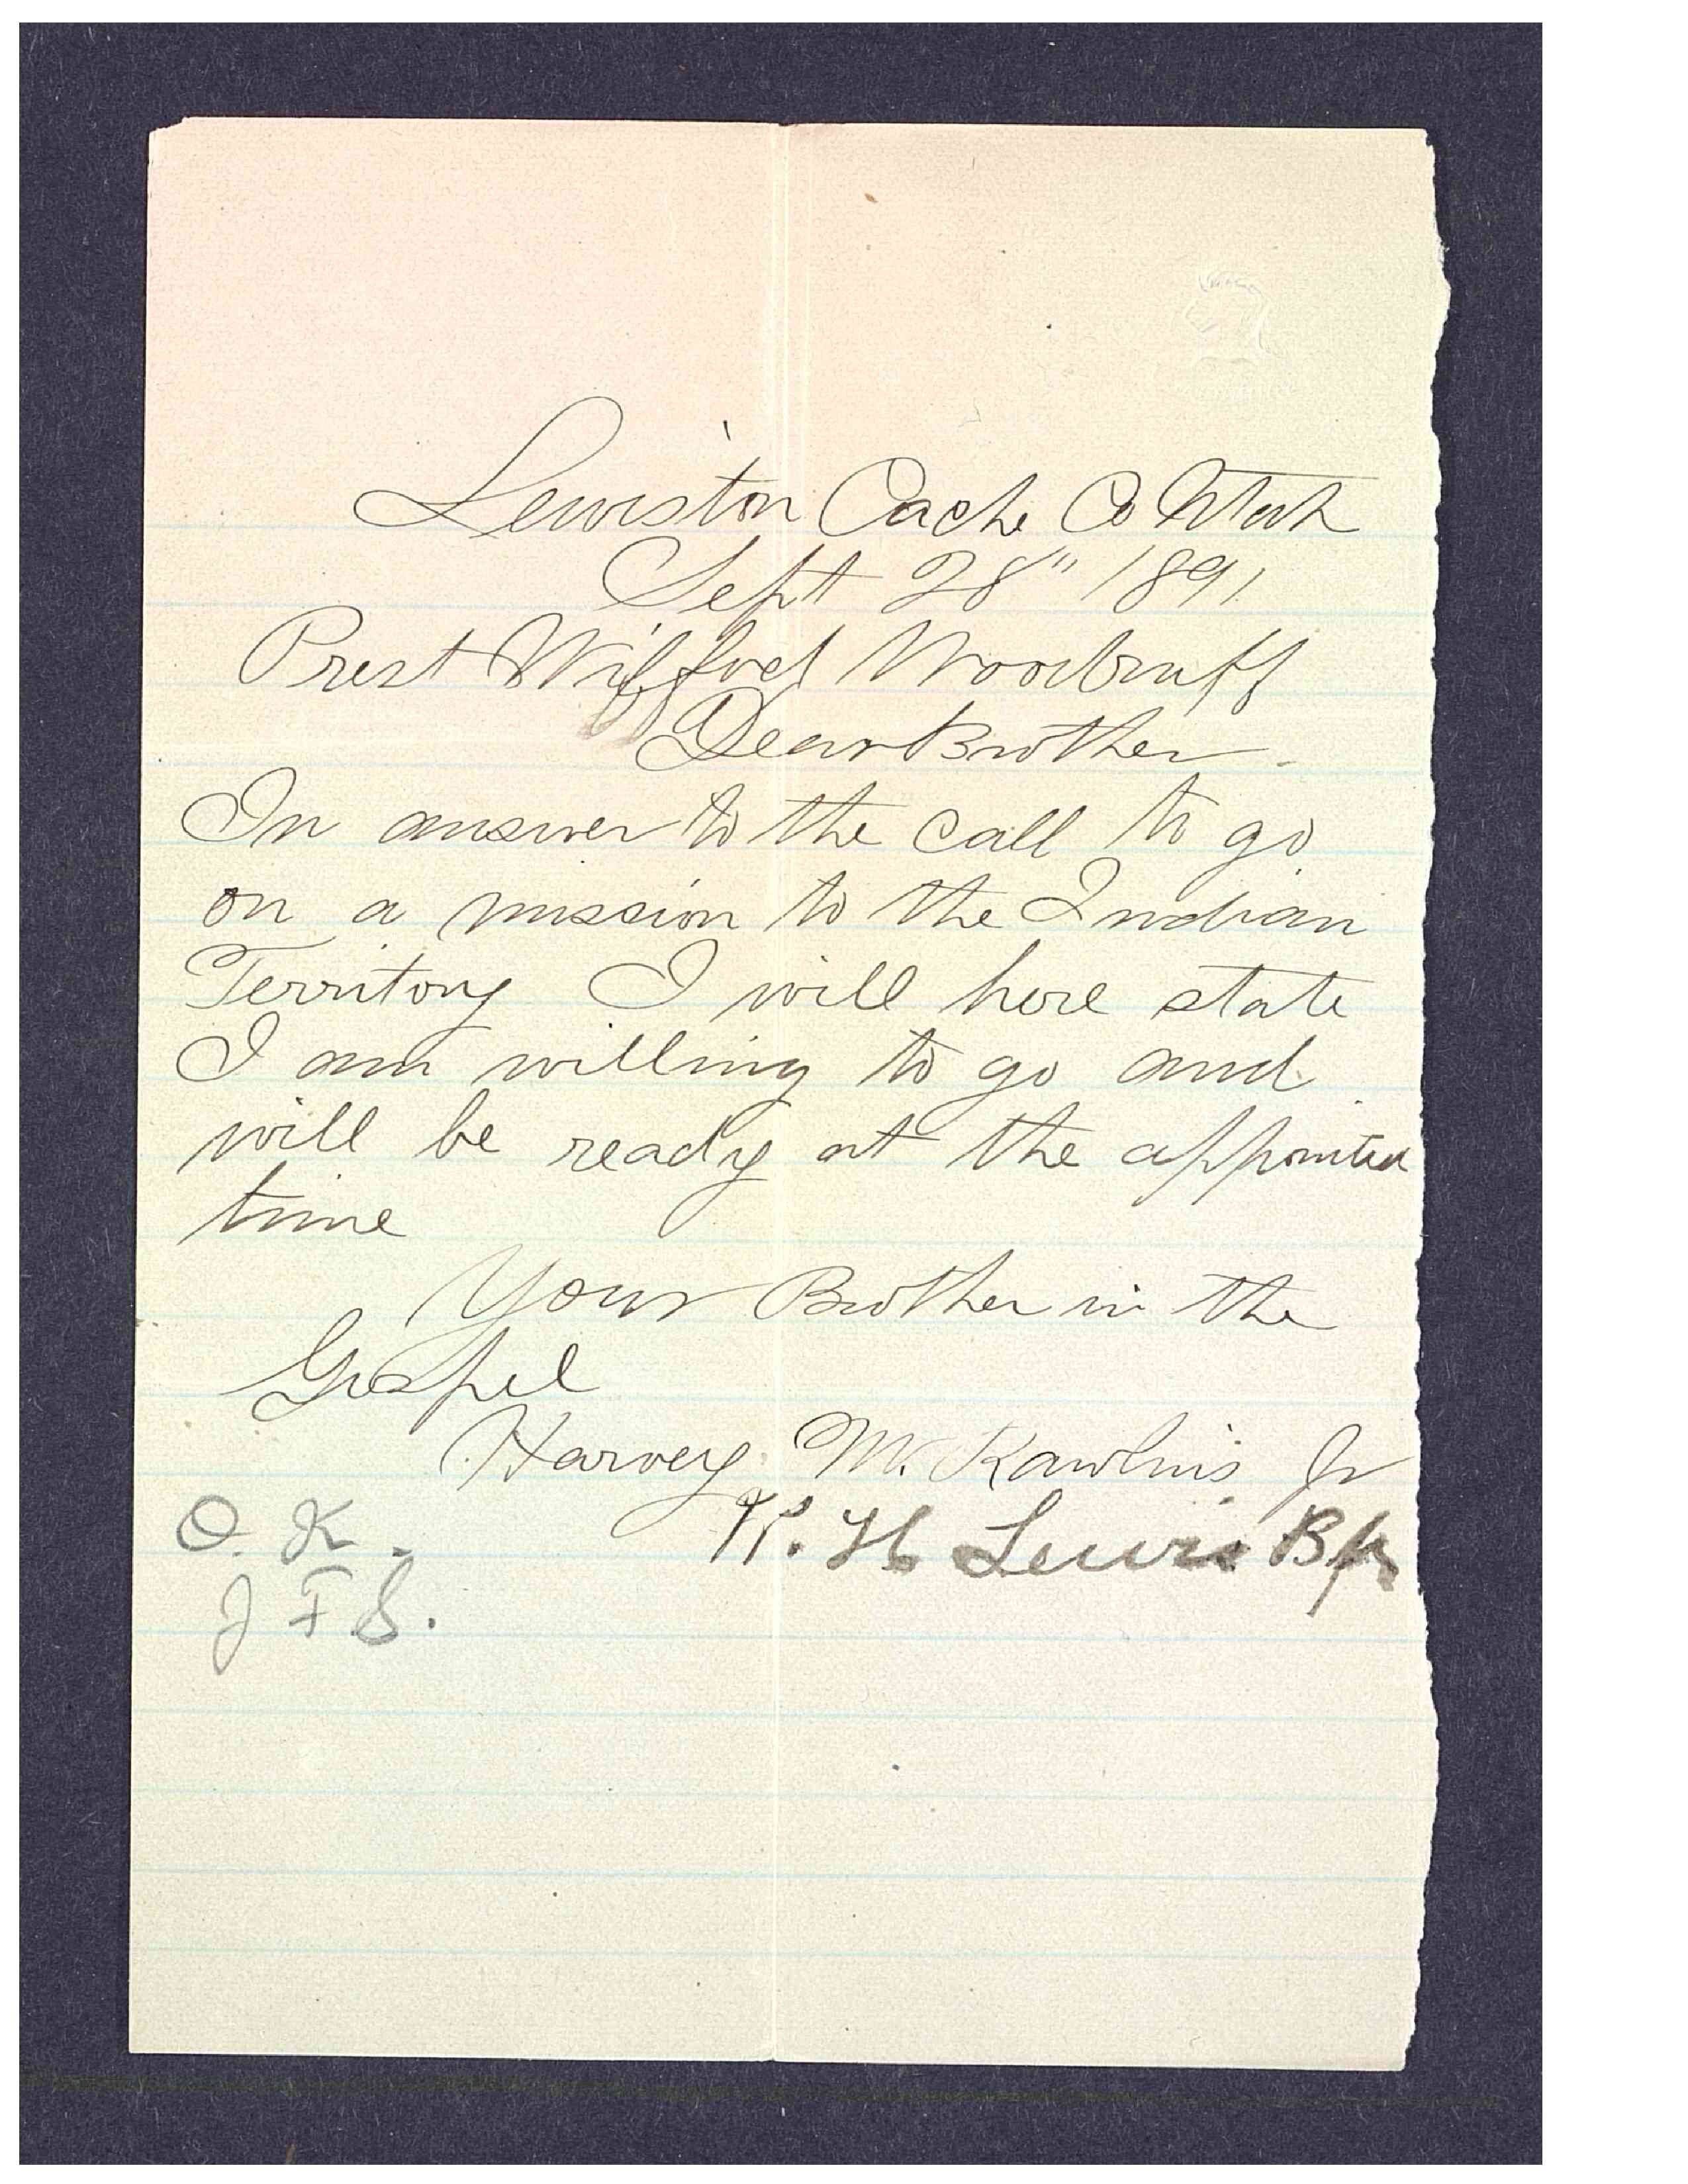 Lewiston Cache Co Utah
Sept 28" 1891
Prest Wilford Woodruff
Dear Brother.
In answer to the call to go
on a mission to the Indian
Territory I will here state
I am willing to go and
will be ready at the appointed
time
Your Brother in the
Gospel
Harvey M. Rawlins Jr
W. H Lewis Bp
O. K.
J F S.